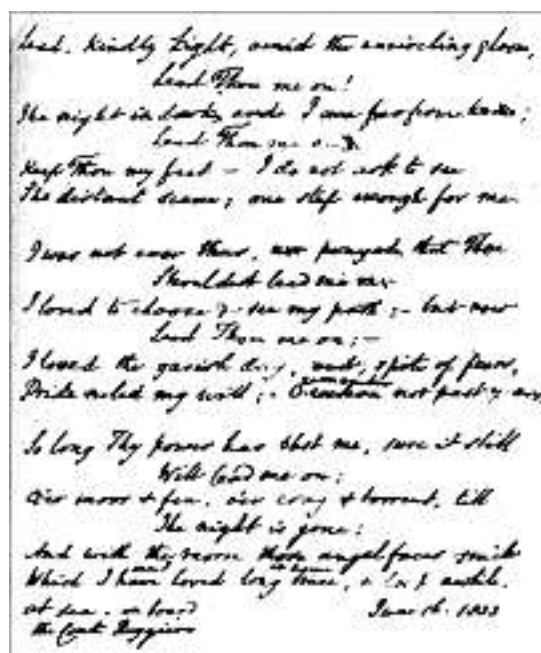 Lead, Kindly Light, amid the encircling gloom,
Lead Thou me on!
The night is dark, and I am far from home;
Lead Thou me on
Keep Thou my feet – I do not ask to see
The distant scene; one step enough for me.
I was not ever thus, nor prayed that Thou
Shouldst lead me on;
I loved to choose & see my path; – but now
Lead Thou me on; –
I loved the garish day, and, spite of fears,
Pride ruled my will; – not past
So long Thy power has blest me, sure it still
Will lead me on;
O'er moor & fen, o'er crag & torrent, till
The night is gone;
And with the morn those angel faces smile
Which I have loved long since, & lost awhile.
at sea. on board
June 16. 1833
the Conte Ruggiero